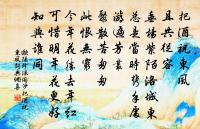 把酒祝東風
且共從容
垂楊紫陌洛城東
總是當年攜手處
游遍芳叢
聚散苦匆匆
此恨無窮
今年花勝去年紅
可惜明年花更好
知與誰同
歐陽修浪淘沙把酒祝